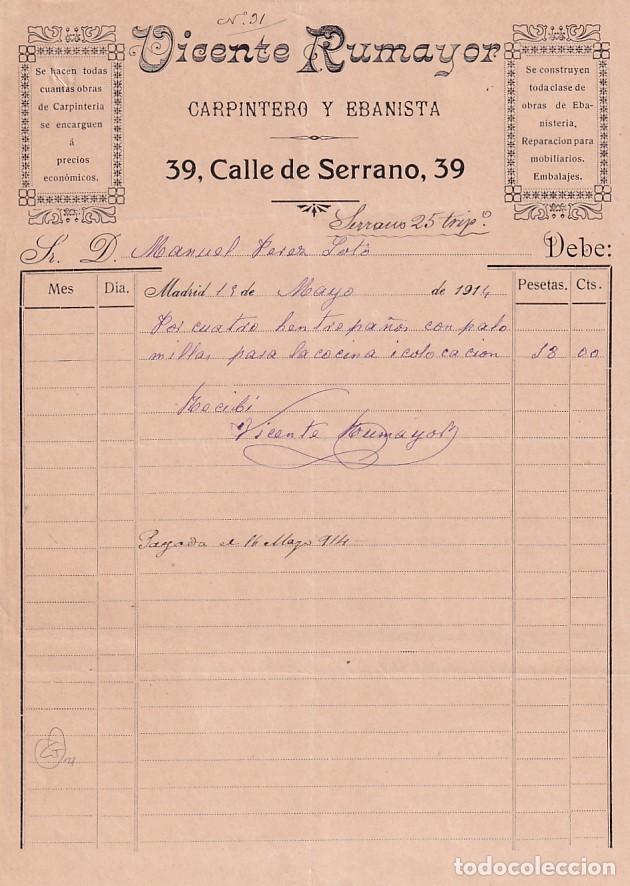 Nº 31
Vicente Rumayor
CARPINTERO Y EBANISTA
39, Calle de Serrano, 39
Se hacen todas
cuantas obras
de Carpinteria
se encarguen
á
precios
económicos.
Se construyen
toda clase de
obras de Eba-
nisteria.
Reparacion para
mobiliarios.
Embalajes.
Serrano 25 tripº
Sr. D. Manuel Perez Soto Debe:
Mes Dia. Madrid de Mayo de 1914 Pesetas. Cts.
Por cuatro hentrepaños con palo
millas para la cocina i colocacion 18 00
Recibi
Vicente Rumayor
Pagada el 16 Mayo 914
todocoleccion
todocoleccion.net